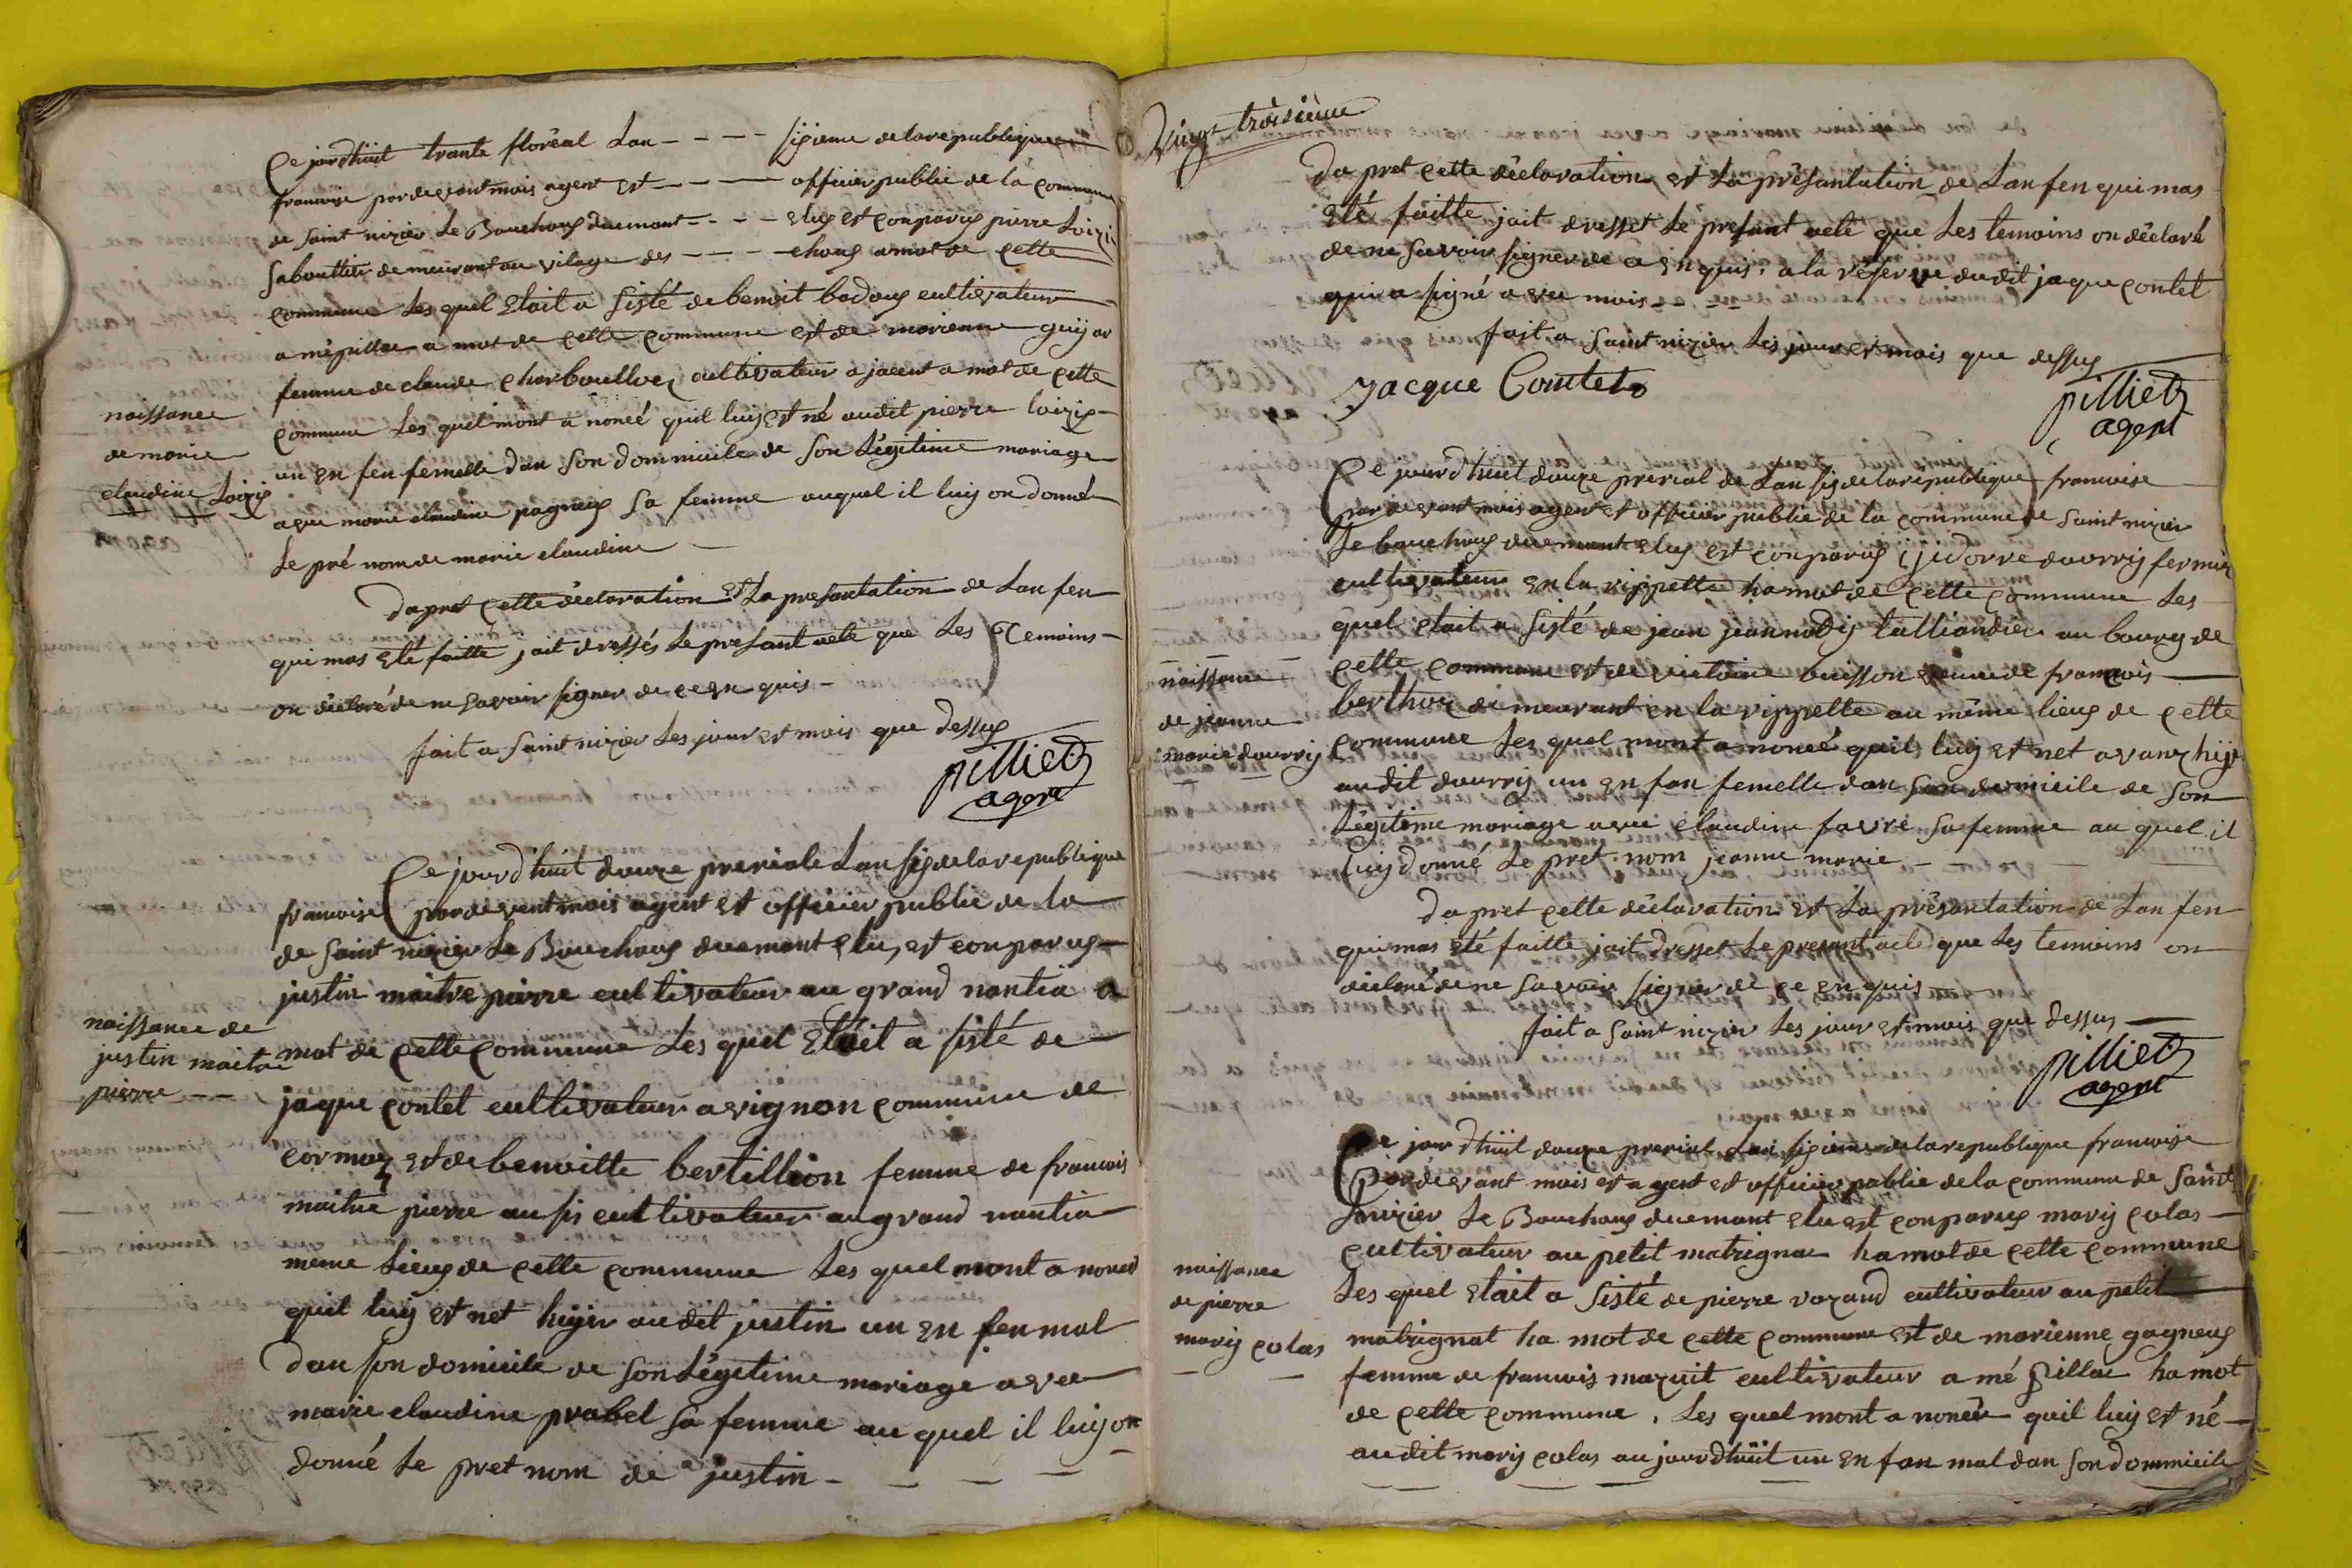 Ce jourdhuit trante floréal Lan - - - - sisieme de la republique
francoise pardevant mois agent est - - - - officier public de la commune
de saint nizier Le Bouchoug duemant - - - elug est conparug pierre Loizi
saboutier demeurant au vilage des - - - - choug a mot de cette
commune Les quel Etait a sisté de benoit badoug cultivateur
a mépillac a mot de cette commune est de marienne guijar
femme de claude charboulloz cultivateur a jacent a mot de cette
commune Les quel mont a noncé quil luij est né audit pierre loizij
un en fen femelle dan son dommicile de son Légitime mariage
avec marie claudine pagneug sa femme auquel il luij on donné
Le pré nom de marie claudine
naissance
de marie
claudine Loizij
Dapret cette déclaration Et La presantation de Lan fen
qui mas Eté faitte jait dressés Le presant acte que Les Temoins
on déclaré de ne savoir signer de ce en quis
fait a saint nizier Les jour et mois que dessug
pilliet
agent
Ce jourdhuit douze preriale Lan sis de la republique
francoise pardevant mois agent et officier public de la
de saint nizier Le Bouchoug duemant elu, est conparug
justin maitre pierre cultivateur au grand nantia a
mot de cette commune Les quel Etait a sisté de
jaque contet cultivateur avignon commune de
cormoz est de benoitte bertillion femme de francois
maitre pierre ausis cultivateur au grand nantia
meme Lieug de cette commune Les quel mont a noncé
quil luij est net hijer audit justin un en fen mal
dan son domicile de son Légitime mariage avec
marie claudine prabel sa femme au quel il luij on
donné Le pret nom de justin
naissance de
justin maitre
pierre
Vingt troisieme
Da pret cette déclaration et La présantation de Lan fen qui mas
Eté faitte jait dresset Le presant acte que Les temoins on déclaré
de ne savoir signer de ce en quis, a la réserve dudit jaque contet
qui a signé avec mois
fait a saint nizier Les jour et mois que dessug
Jacque Contet
pilliet
agent
Ce jourdhuit douze prerial de Lan sis de la republique francoise
pardevant mois agent et officier public de la commune de saint nizier
Le bouchoug duemant elug est conparug ijidorre dourrij fermier
cultivateur en la rippette hamot de cette commune Les
quel etait a sisté de jean jeannodij tailliandier au bourg de
cette commune est de victoire buisson veuve de francois
berthoz demeurant en la rippette au même lieug de cette
commune Les quel mont a noncé quil luij est net avant hijer
audit dourrij un en fan femelle dan son domicile de son
Légitime mariage avec claudine favre sa femme au quel il
luij donné Le pret nom jeanne marie
naissance
de jeanne
marie dourrij
Da pret cette déclaration et La présantation de Lan fen
qui mas eté faitte jait dresset Le presant acte que Les temoins on
déclaré de ne savoir signer de ce en quis
fait a saint nizier Les jour et mois que dessug
pilliet
agent
Ce jourdhuit douze prerial Lan sisieme de la republique francoise
pardevant mois et agent est officier public de la commune de saint
nizier Le Bouchoug duemant elu est conparug marij colas
cultivateur au petit matrignac hamot de cette commune
Les quel etait a sisté de pierre vozand cultivateur au petit
matrignat ha mot de cette commune est de marienne gagneug
femme de francois mazuit cultivateur a mé pillac hamot
de cette commune, Les quel mont a noncér quil luij est né
audit marij colas aujourdhuit un en fan mal dan son dommicile
naissance
de pierre
marij colas